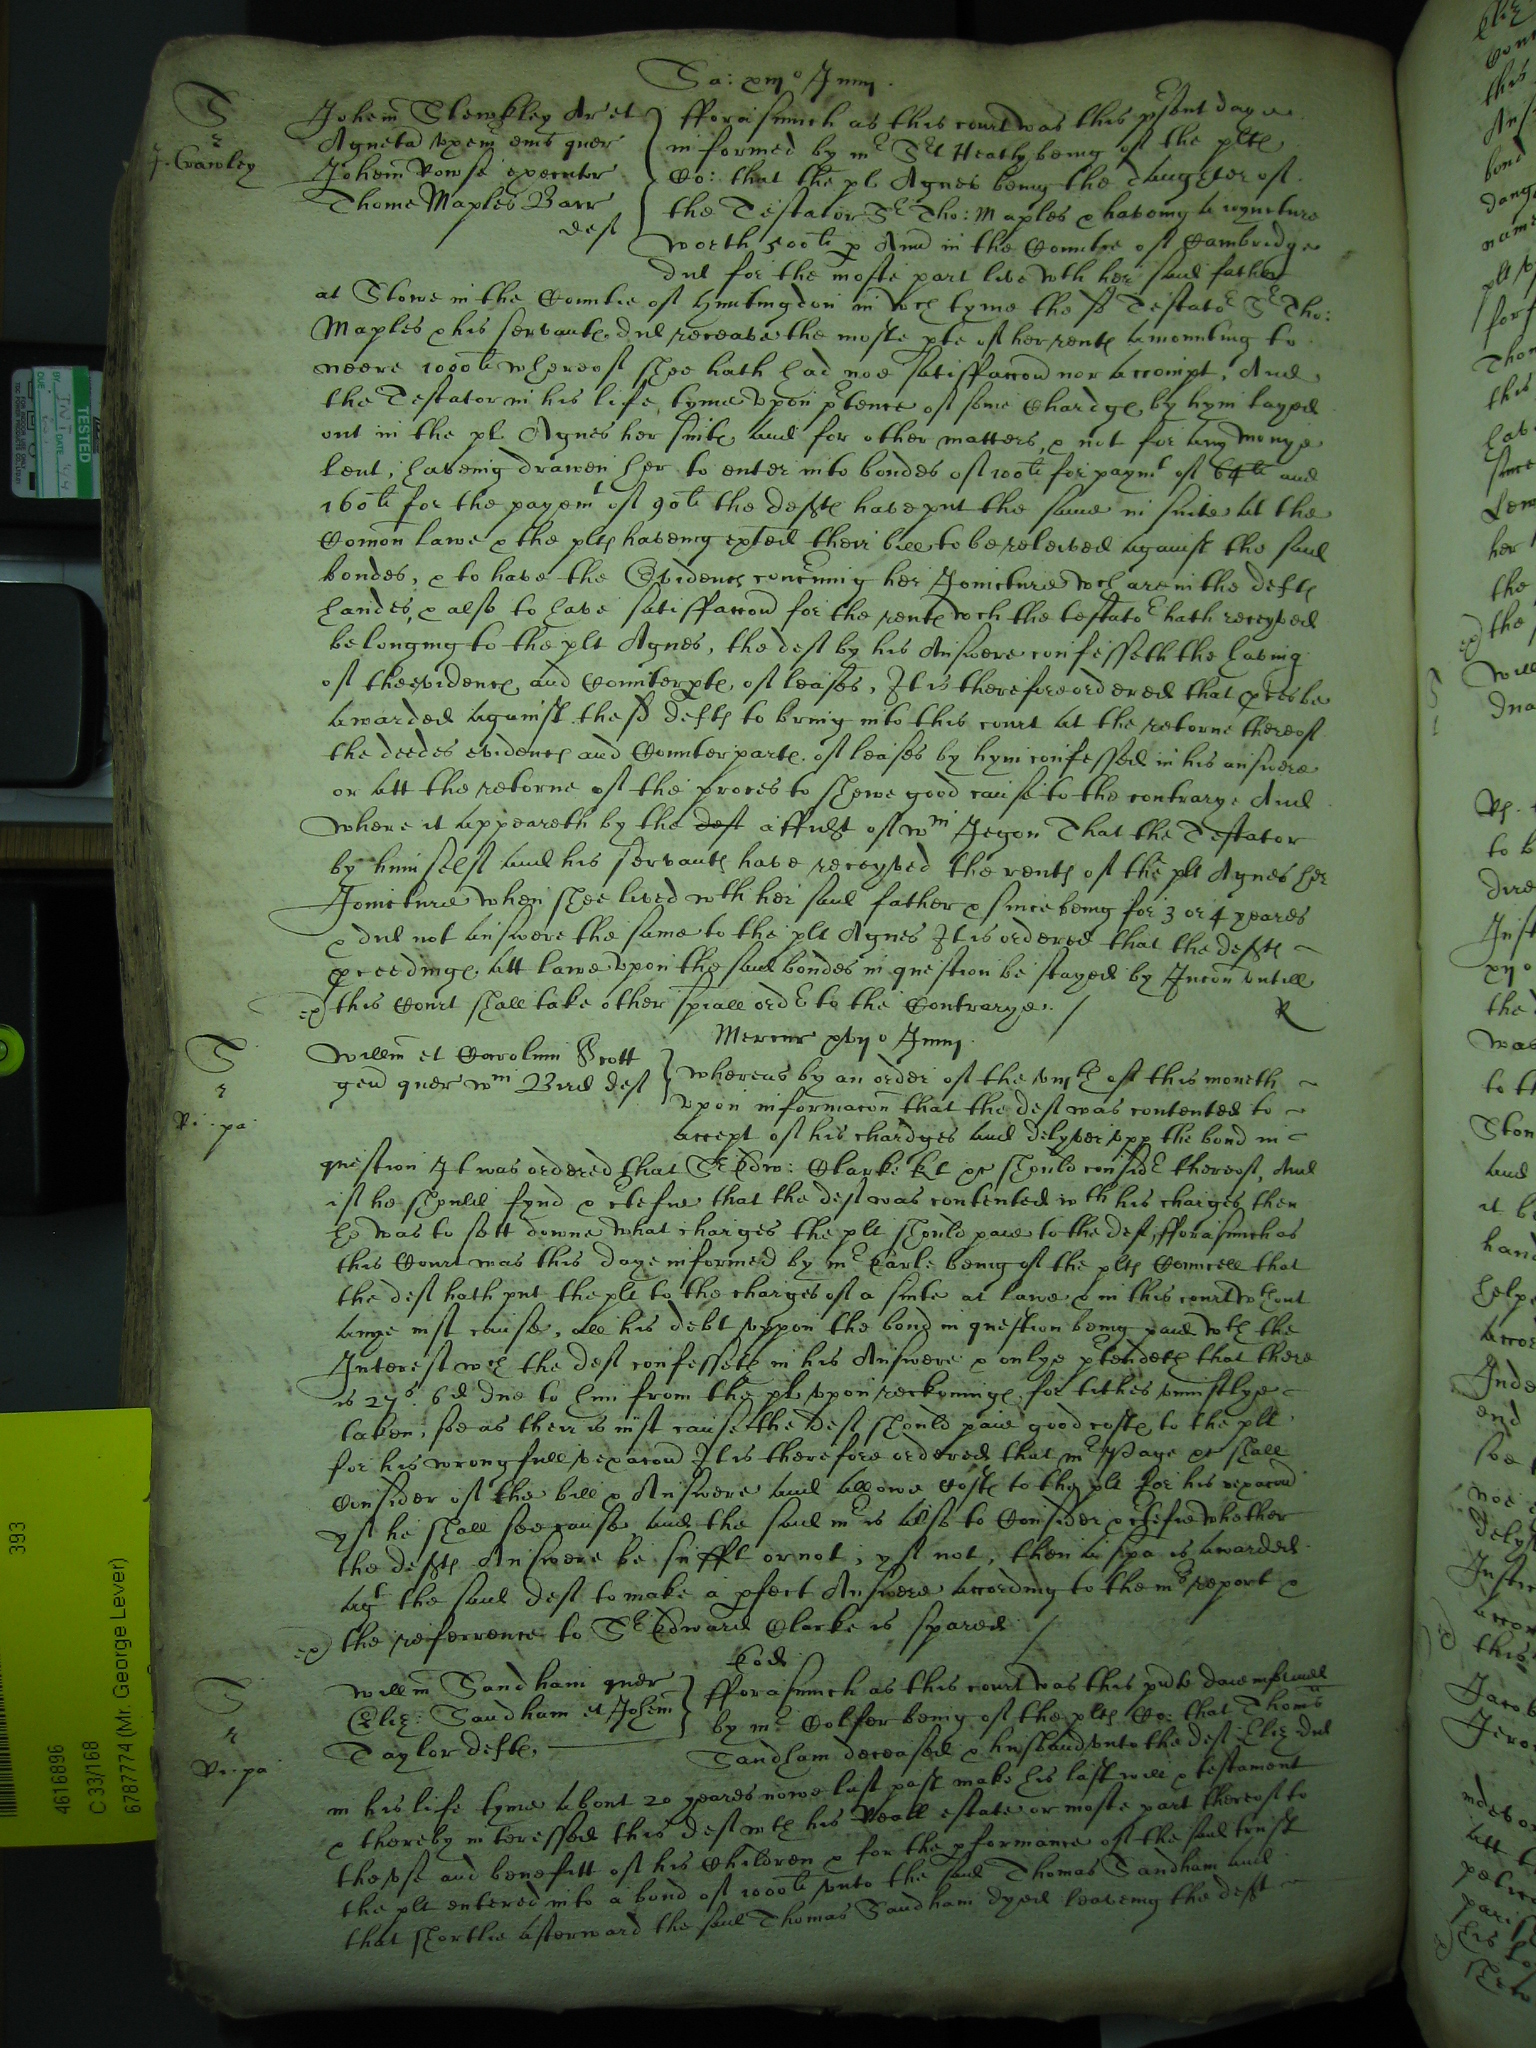 Sa: xiijo Junij.
S
r
J. Crawley
Johem Stewkley Ar et
Agneta uxem eius quer
Johem Vowse executor
Thome Maples Barr
deft
fforasmuch as this court was this psent daye
informed by mr Sct Heath being of the plts
Co: that the pl Agnes being the daughter of
the Testator Sr Tho: Maples & haveing a ioyncture
worth 500li p Ann in the Countie of Cambridge
did for the moste part live wth her said father
at Stowe in the Countie of Huntingdon in wch tyme the sd Testator Sr Tho:
Maples & his servants did receave the moste pte of her rents amounting to
neere 1000li whereof shee hath had noe satisfaccon nor accompt, And
the Testator in his life tyme upon ptence of some Chardges by hym layed
out in the pl Agnes her suite and for other matters, & not for any monye
lent, haveing drawen her to enter into bondes of 100li for paymt of 64li and
160li for the payemt of 90li the defts have put the same in suite at the
Comon lawe & the plts haveing exted their bill to be releived against the said
bondes, & to have the Evidences concning her Joincture wch are in the defts
handes, & also to have satisfaccon for the rents wch the testator hath receyved
belonging to the plt Agnes, the deft by his Answere confesseth the having
of the evidences and Counterptes of leases, It is therefore ordered that pces be
awarded against the sd defts to bring into this court at the retorne thereof
the deedes evidences and Counterpartes of leases by hym confessed in his answere
or att the retorne of the proces to shewe good cause to the contrarye And
where it appeareth by the deft affidt of Wm Jegon That the Testator
by himselfe and his servants have receyved the rents of the plt Agnes her
Joincture when shee lived wth her said father & since being for 3 or 4 yeares
& did not answere the same to the plt Agnes It is ordered that the defts
pceedinges att lawe upon the said bondes in question be stayed by Iniucon untill
ex) this Court shall take other spiall order to the Contrarye. / R
Mercur xvijo Junij.
S
r
Ri: pa:
Willm et Carolum Scott
gen quer Wm Bird deft
Whereas by an order of the viijth of this moneth
upon informacon that the deft was contented to
accept of his chardges and delyver upp the bond in
question It was ordered that Sr Edw: Clarke kt &c should consider thereof, And
if he should fynd & ctefie that the deft was contented wth his charges then
he was to sett downe what charges the plt should paie to the deft, fforasmuch as
this Court was this daye informed by mr Earle being of the plts Councell that
the deft hath put the plt to the charges of a suite at lawe & in this court wthout
anye iust cause, all his debt uppon the bond in question being paid wth the
Interest wch the deft confesseth in his Answere & onlye ptendeth that there
is 27s. 6d due to him from the pl upon reckyninge for tithes uniustlye
taken, soe as their is iust cause the deft should paie good costes to the plt
for his wrongfull vexacon It is therefore ordered that mr Page &c shall
Consider of the bill & Answere and allowe Costs to the plt for his vexacon
yf he shall see cause and the said mr is also to Consider & ctefie whether
the defts Answere be sufft or not, yf not, then a spa is awarded
agt the said deft to make a pfect Answere according to the mrs report &
ex) the referrence to Sr Edward Clarke is spared /
Eod
S
r
Ri: pa
Willm Sandham quer
Eliz: Sandham et Johem
Taylor defts,
fforasmuch as this court was this pnte daie informed
by mr Colfer being of the plts Co: that Thoms
Sandham deceased & husband unto the deft Eliz did
in his life tyme about 20 yeares nowe last past make his last will & testament
& thereby interessed this deft wth his Reall estate or moste part thereof to
the use and benefitt of his Children & for the pformance of the said trust
the plt entered into a bond of 1000li unto the said Thomas Sandham and
that shortlie afterward the said Thomas Sandham dyed leaveing the deft
TESTED
393
4616896
C 33/168
6787774 (Mr. George Lever)